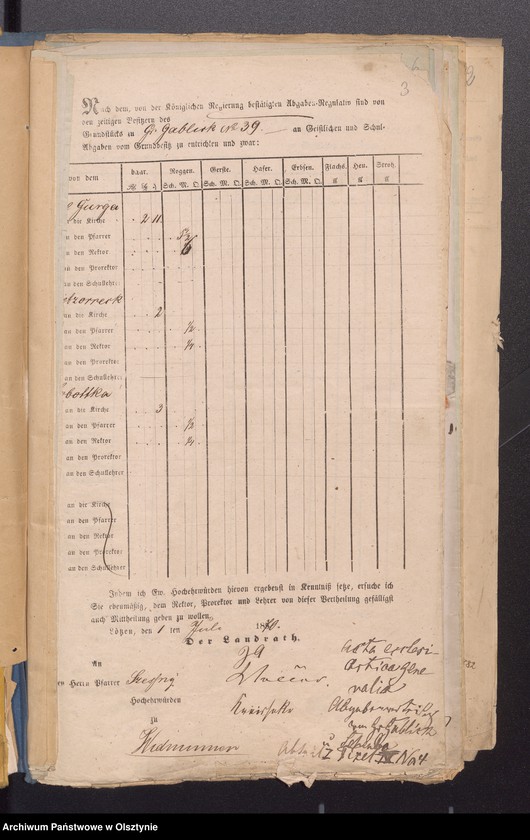 3
Nach dem, von der Königlichen Regierung bestätigten Abgaben-Regulativ sind von
den zeitigen Besitzern des
Grundstücks zu Gr. Gablick No 39. an Geistlichen und Schul-
Abgaben vom Grundbesitz zu entrichten und zwar:
von dem baar. Roggen. Gerste. Hafer. Erbsen. Flachs. Heu. Stroh.
Sch. M. O. Sch. M. O. Sch. M. O. Sch. M. O.
Gurga
die Kirche 2 11
an den Pfarrer 5½
an den Rektor 6
an den Prorektor
an den Schullehr:
an die Kirche 2
an den Pfarrer ½
an den Rektor ½
an den Prorektor
an den Schullehr:
bottka
an die Kirche 3
an den Pfarrer ½
an den Rektor ½
an den Prorektor
an den Schullehrer
an die Kirche
an den Pfarrer
an den Rektor
an den Prorektor
an den Schullehrer
Indem ich Ew. Hochehrwürden hiervon ergebenst in Kenntniß setze, ersuche ich
Sie ebenmäßig, dem Rektor, Prorektor und Lehrer von dieser Vertheilung gefälligst
auch Mittheilung geben zu wollen.
Lötzen, den 1 ten Juli 18
Der Landrath.
An
den Herrn Pfarrer
Hochehrwürden
zu
Widminnen
Acta
generalia
No 4
Archiwum Państwowe w Olsztynie